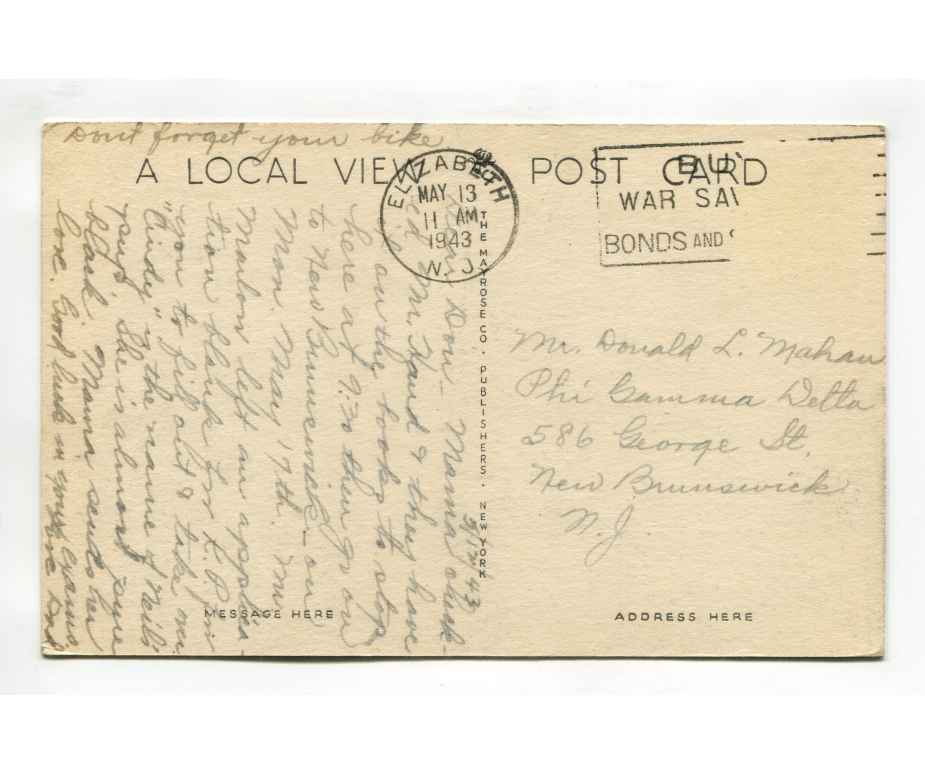 Dont forget your bike
A LOCAL VIEW POST CARD
ELIZABETH
MAY 13
11 AM
1943
N.J.
BUY
WAR SAV
BONDS AND
THE MAYROSE CO. PUBLISHERS. NEW YORK
5/12/43
Dear Don – Mama check-
ed Mr. Hand & they have
on the books to stop
here at 9:30 then go on
to New Brunswick – on
Mon. May 17th. Mr
Marlon left an applica-
tion blank for R.P. in
you to fill out & take
"Cindy" the name of Neil's
pup. She is almost pure
black. Mama sends her
love. Good luck in your exams.
Mr. Donald L. Mahan
Phi Gamma Delta
586 George St.
New Brunswick
N.J.
MESSAGE HERE
ADDRESS HERE